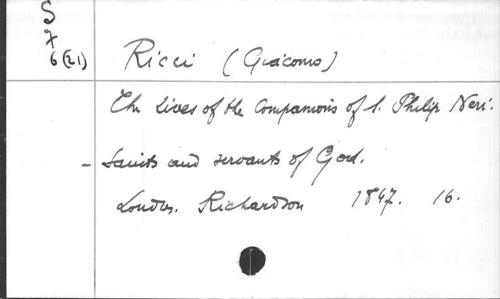 S
7
6 (21)
Ricci (Giacomo)
The Lives of the Companions of S. Philip Neri.
- Saints and servants of God.
Londres. Richardson 1847. 16.